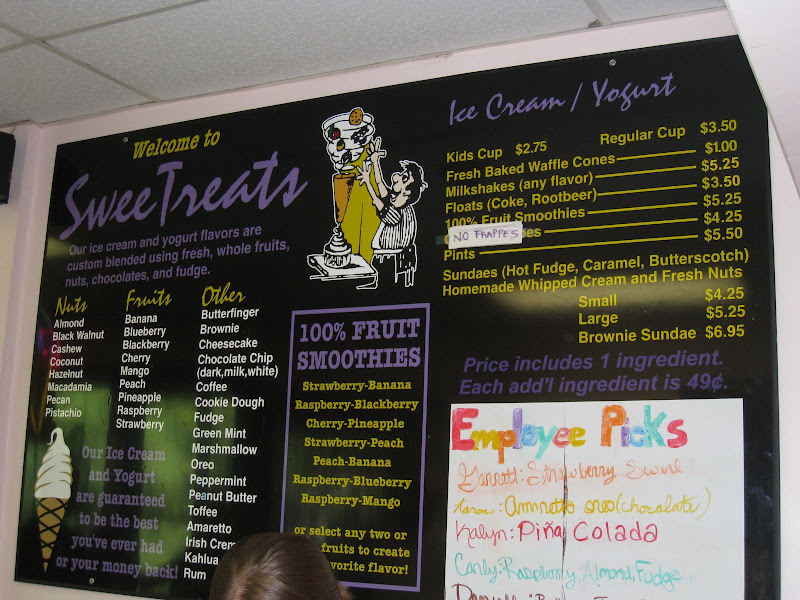 Welcome to
SweeTreats
Our ice cream and yogurt flavors are
custom blended using fresh, whole fruits,
nuts, chocolates, and fudge.
Nuts
Almond
Black Walnut
Cashew
Coconut
Hazelnut
Macadamia
Pecan
Pistachio
Fruits
Banana
Blueberry
Blackberry
Cherry
Mango
Peach
Pineapple
Raspberry
Strawberry
Other
Butterfinger
Brownie
Cheesecake
Chocolate Chip
(dark,milk,white)
Coffee
Cookie Dough
Fudge
Green Mint
Marshmallow
Oreo
Peppermint
Peanut Butter
Toffee
Amaretto
Irish
Kahlua
Rum
Our Ice Cream
and Yogurt
are guaranteed
to be the best
you've ever had
or your money back!
100% FRUIT
SMOOTHIES
Strawberry-Banana
Raspberry-Blackberry
Cherry-Pineapple
Strawberry-Peach
Peach-Banana
Raspberry-Blueberry
Raspberry-Mango
or select any two or
fruits to create
favorite flavor!
Ice Cream / Yogurt
Kids Cup $2.75 Regular Cup $3.50
Fresh Baked Waffle Cones $1.00
Milkshakes (any flavor) $5.25
Floats (Coke, Rootbeer) $3.50
100% Fruit Smoothies $5.25
NO FRAPPES $4.25
Pints $5.50
Sundaes (Hot Fudge, Caramel, Butterscotch)
Homemade Whipped Cream and Fresh Nuts
Small $4.25
Large $5.25
Brownie Sundae $6.95
Price includes 1 ingredient.
Each add'l ingredient is 49¢.
Employee Picks
Garrett: Strawberry Swirl
Aaron: Amaretto oreo (chocolate)
Kalyn: Piña Colada
Carly: Raspberry, Almond, Fudge